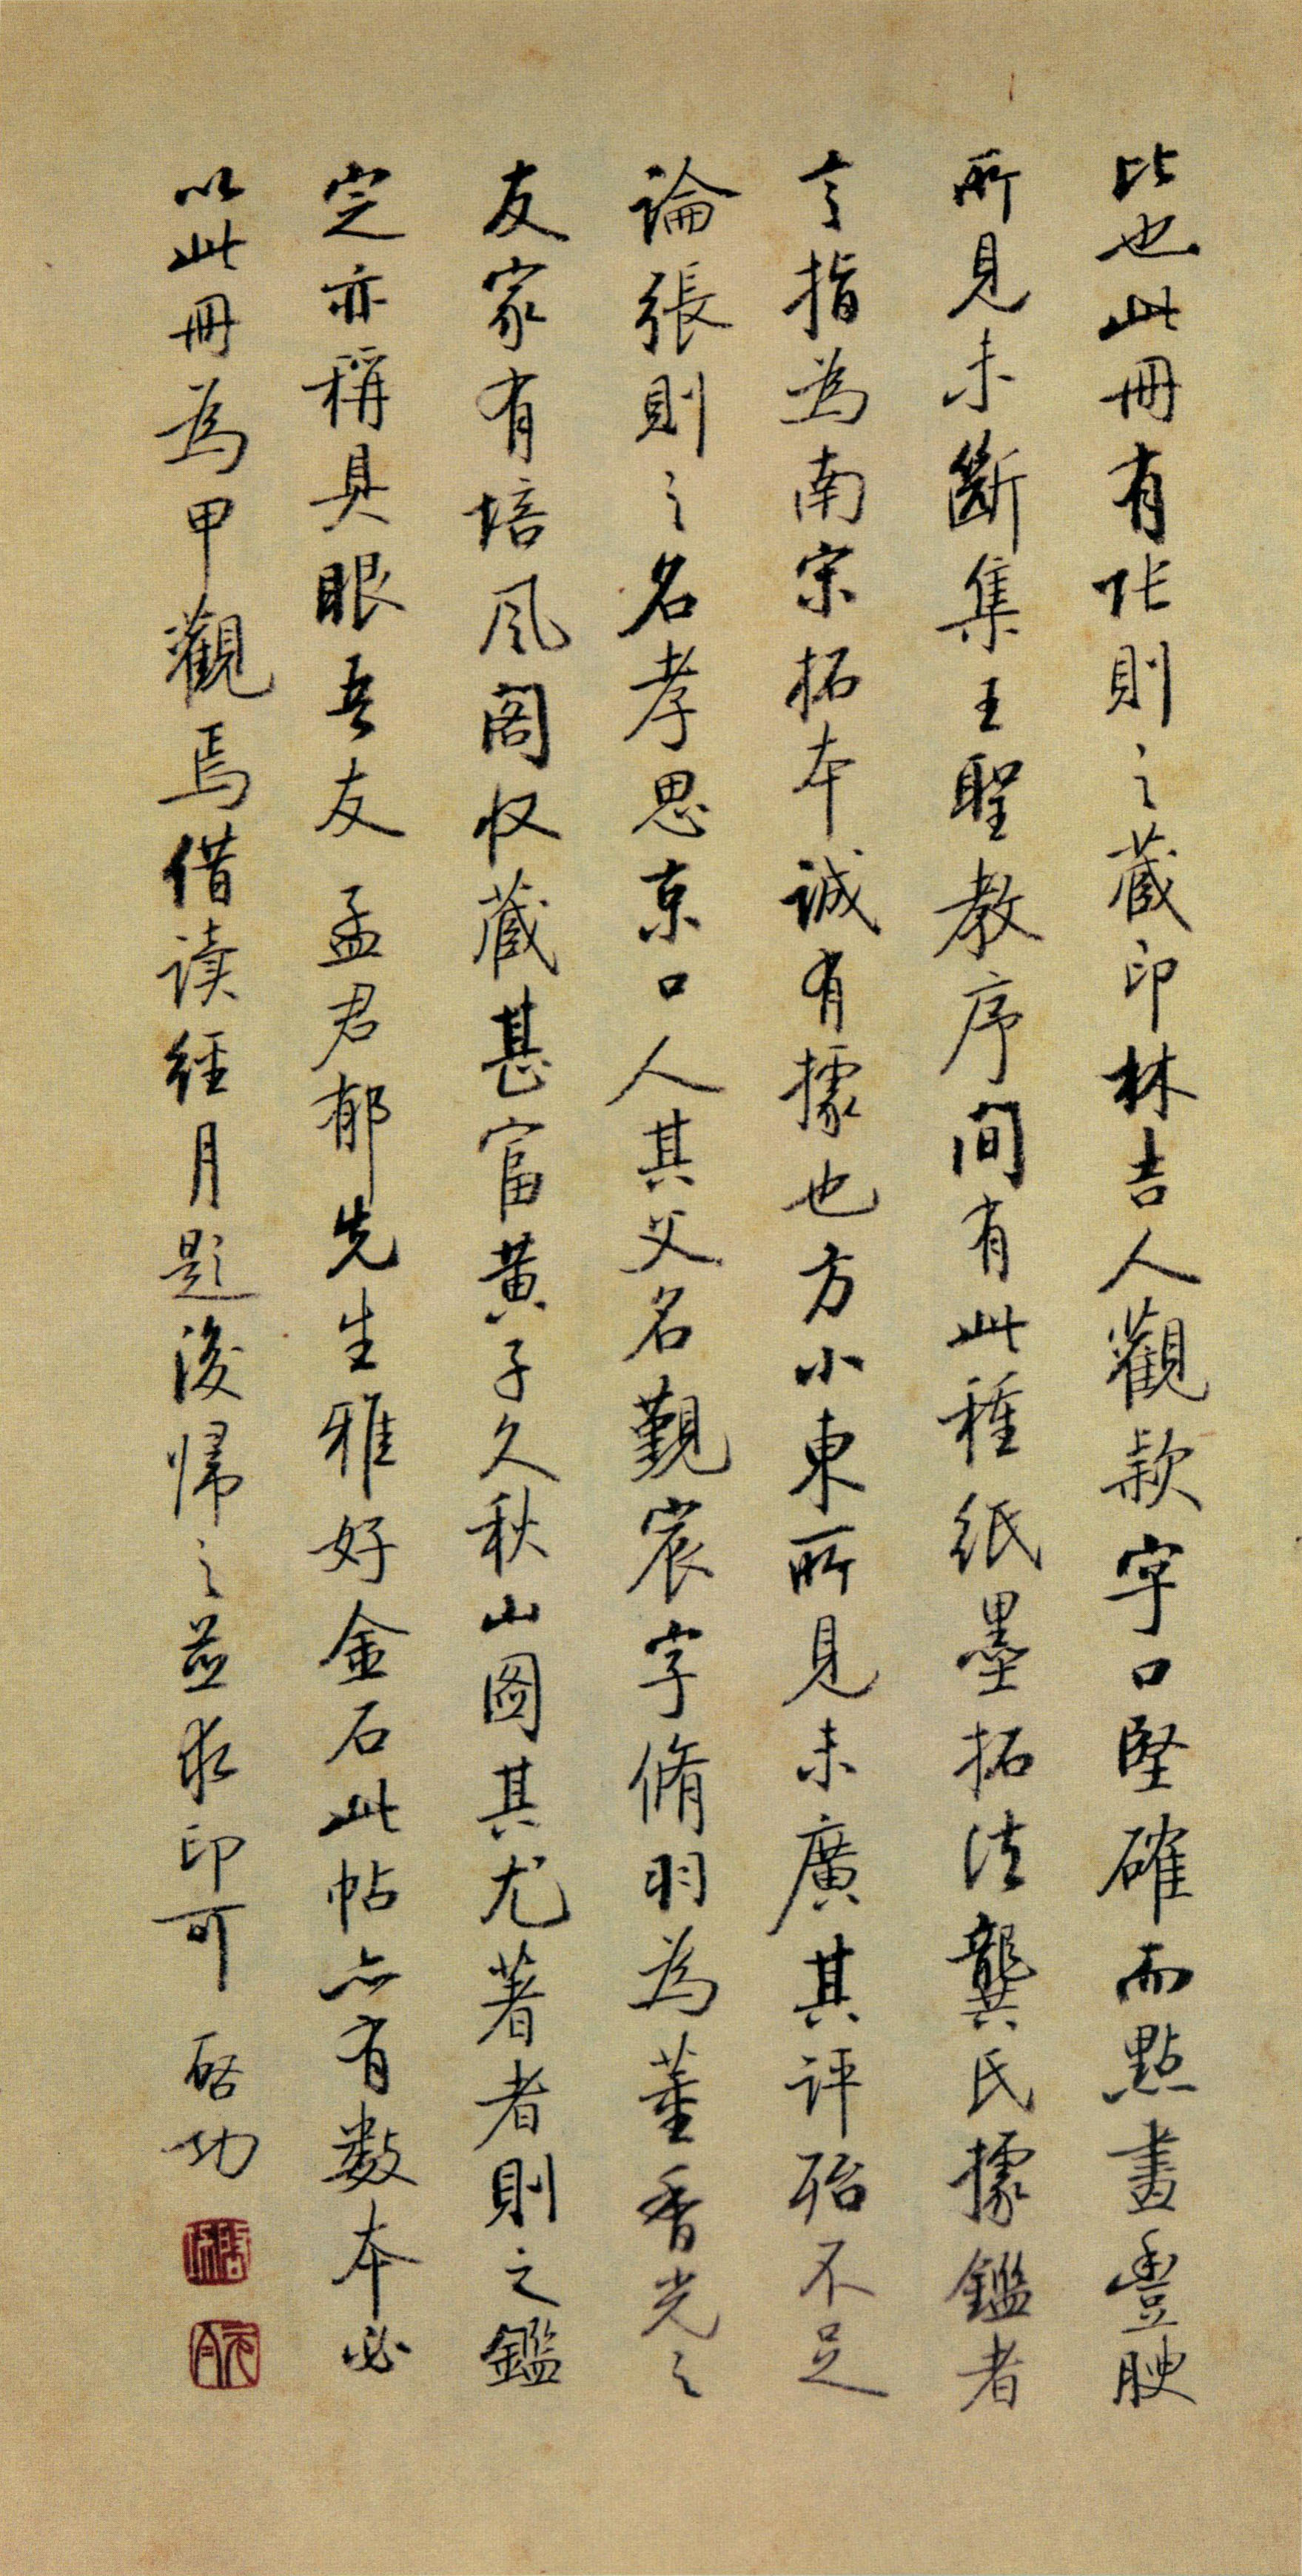 比也此冊有張則之藏印林吉人觀款字口堅確而點畫豐腴
所見未斷集王聖教序間有此種紙墨拓法龔氏據鑑者
言指為南宋拓本誠有據也方小東所見未廣其評殆不足
論張則之名孝思京口人其父名覲宸字脩羽為董香光之
友家有培风阁收藏甚富黄子久秋山图其尤著者則之鑑
定亦稱具眼吾友孟君郁先生雅好金石此帖亦有数本必
以此冊為甲觀焉借读經月題後歸之并求印可 启功